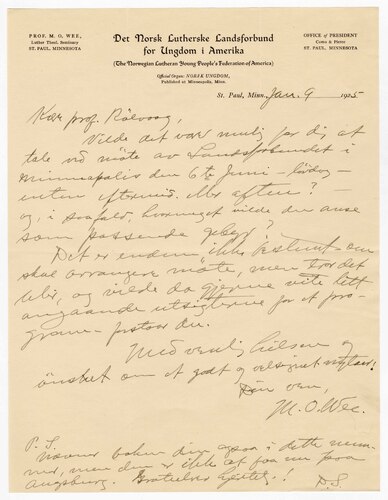 PROF. M. O. WEE,
Luther Theol. Seminary
ST. PAUL, MINNESOTA
Det Norsk Lutherske Landsforbund
for Ungdom i Amerika
(The Norwegian Lutheran Young People's Federation of America)
Official Organ: NORSK UNGDOM,
Published at Minneapolis, Minn.
OFFICE of PRESIDENT
Como & Pierce
ST. PAUL, MINNESOTA
St. Paul, Minn. Jan. 9 1925
Kære prof. Rölvaag,
Vilde det være mulig for dig at
tale ved möte av Landsforbundet i
Minneapolis den 6te Juni – lördag –
enten eftermid. eller aften? –
og, i saafald, hvormeget vilde du anse
som passende gebyr?
Det er endnu ikke bestemt om
skal arrangere möte, men tror det
blir, og vilde da gjerne vite litt
angaaende utsigterne for et pro-
gram – forstaar du.
Med venlig hilsen og
önsket om et godt og velsignet nytaar!
Din ven,
M. O. Wee.
P. S.
Nævner boken din ogsaa i dette num-
mer, men den er ikke at faa nu paa
Augsburg. Gratulerer hjertelig!
D. S.